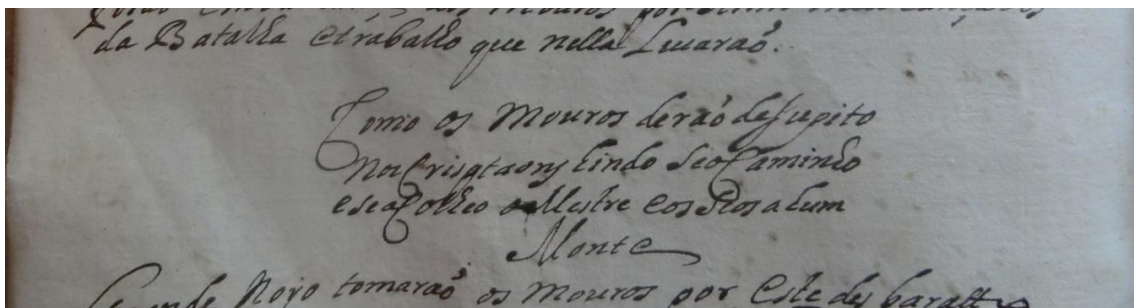 da Batalha etrabalho que nella Leuaraõ.
Como os Mouros deraõ desupito
Nos Crisptaons hindo seo Caminho
eseacolheo o Mestre eos seos ahum
Monte
Grande Nojo tomaraõ os Mouros por este desbaratto